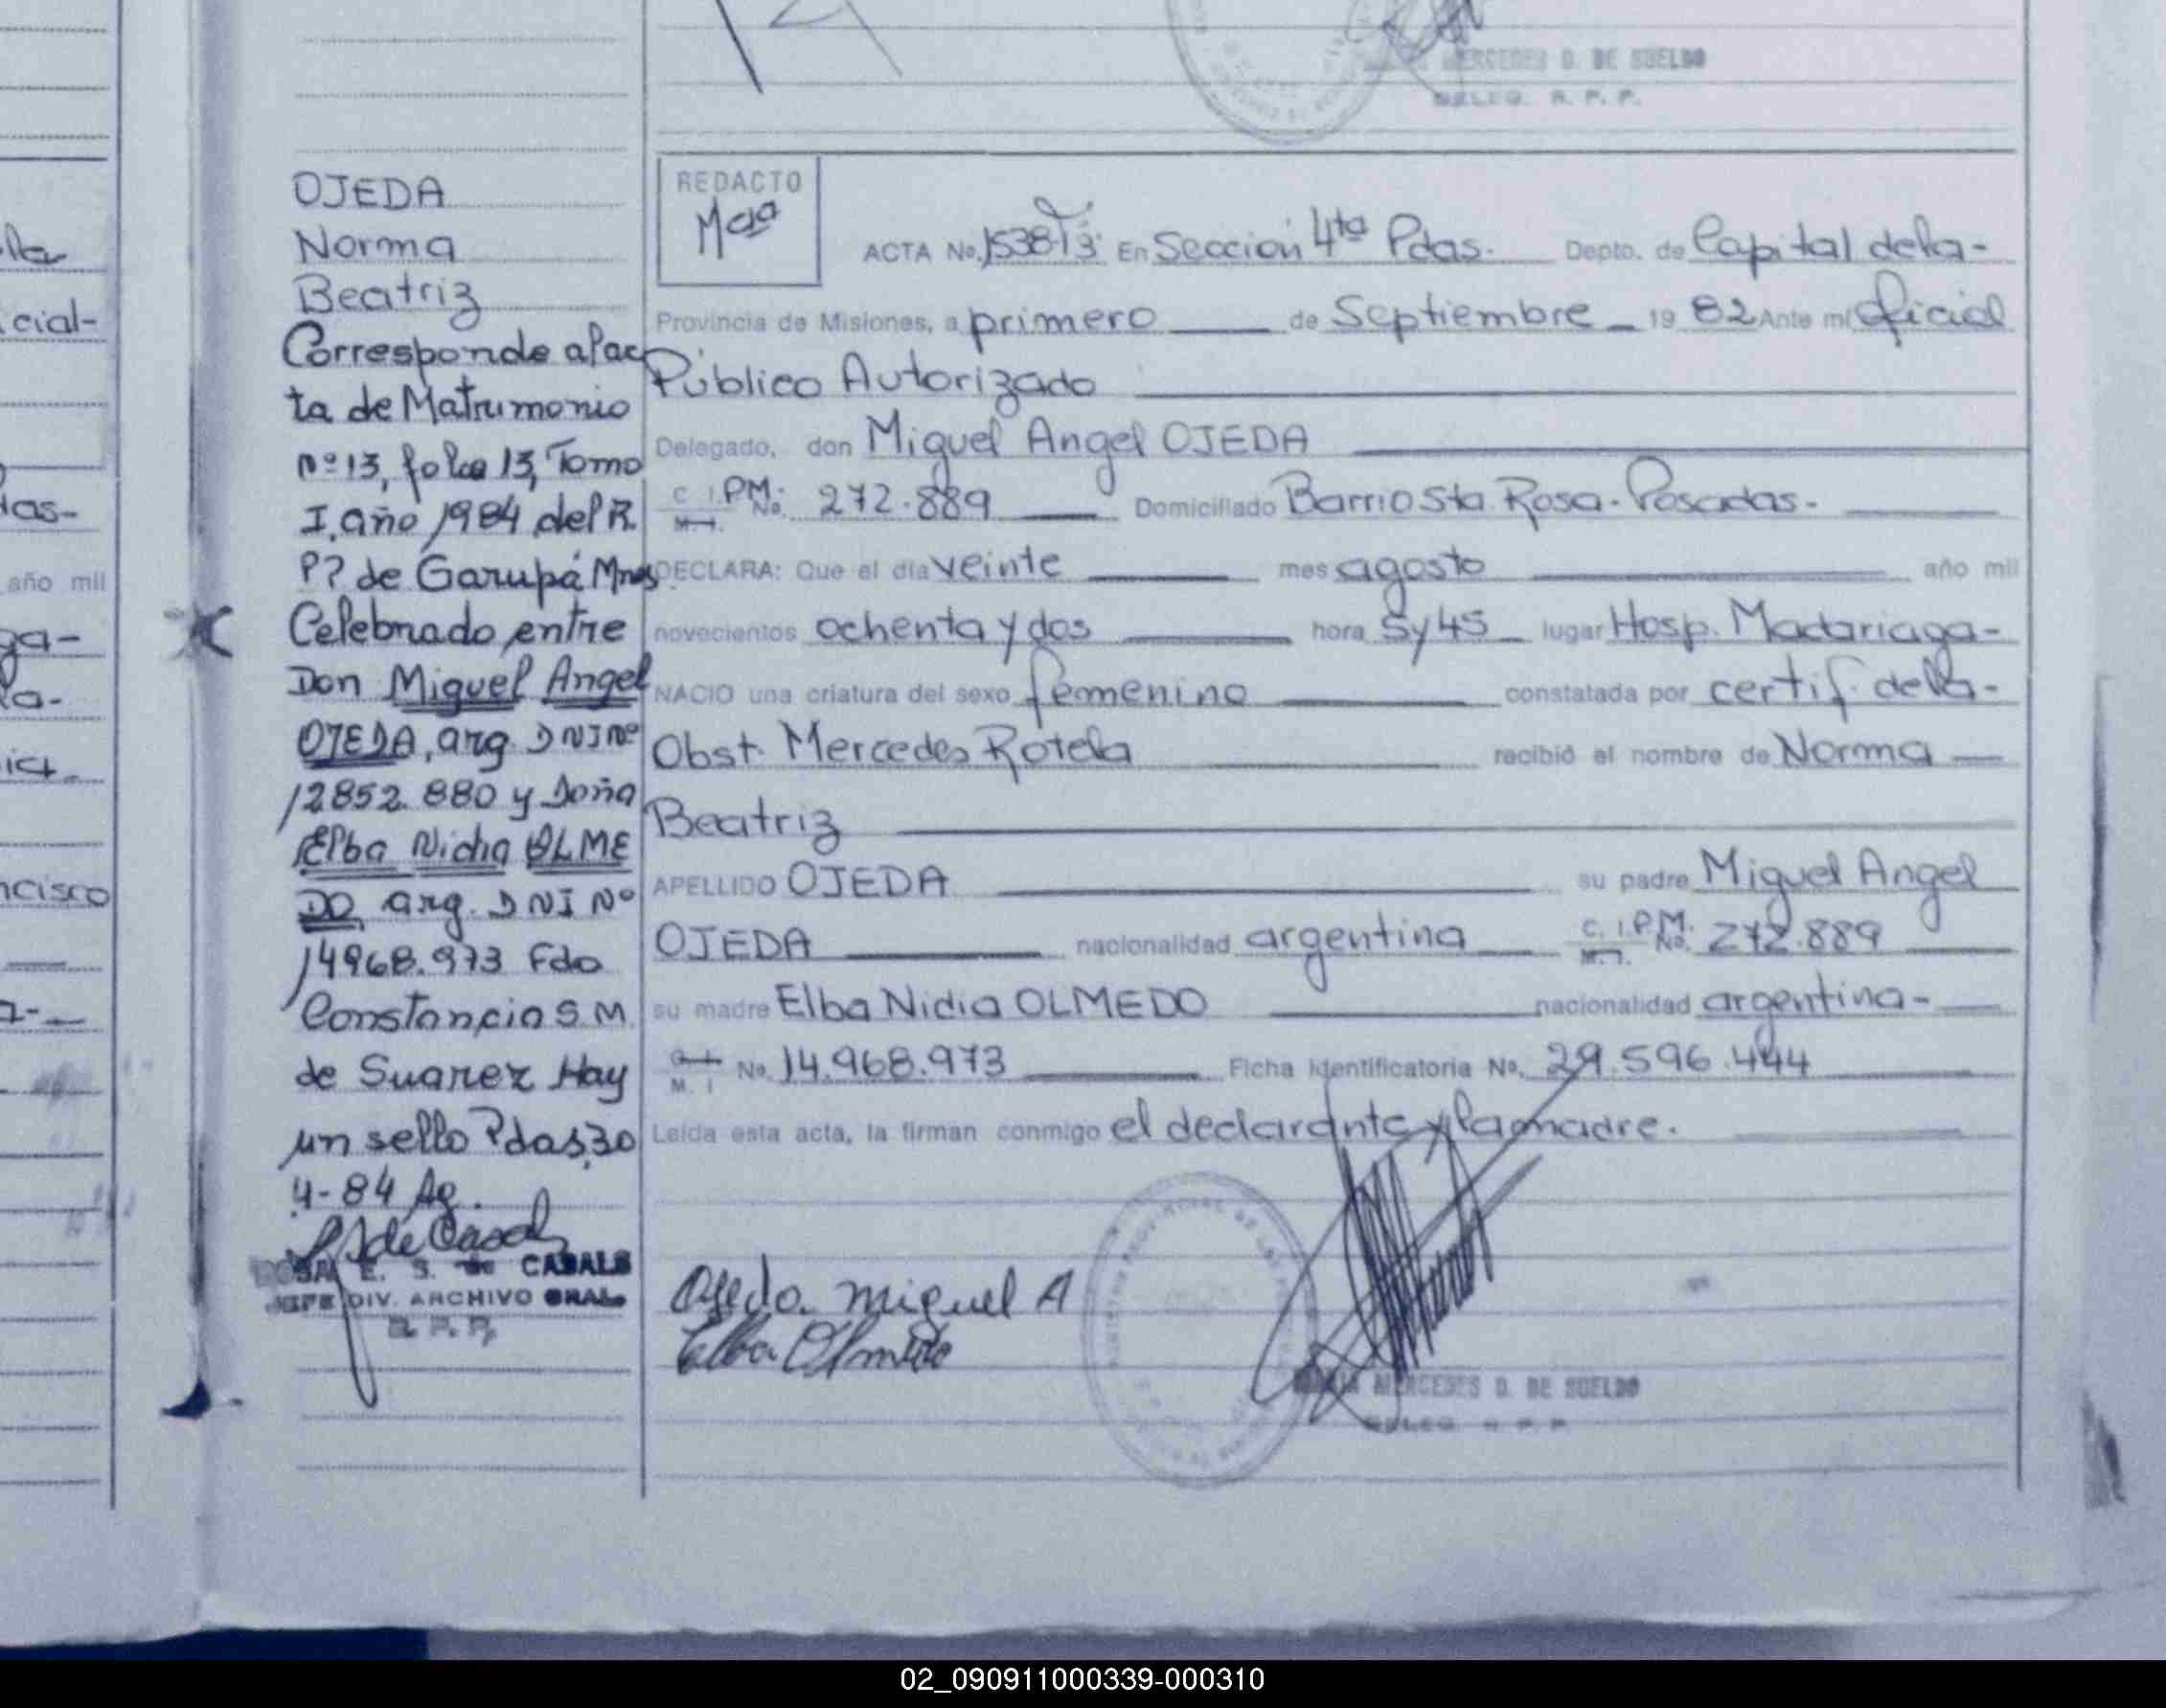 MERCEDES D. DE SUELDO
DELEG. R. P. P.
OJEDA
Norma
Beatriz
Corresponde al ac
ta de Matrimonio
Nº 13, folio 13, Tomo
I, año 1984 del R.
P? de Garupá Mnes
Celebrado entre
Don Miguel Angel
OJEDA, arg. DNI Nº
12852.880 y Doña
Elba Nidia OLME
DO, arg. DNI Nº
14968.973 Fdo
Constancia S.M.
de Suarez Hay
un sello Pdas, 30
4-84 Ag.
E. S. de CASALS
JEFE DIV. ARCHIVO GRAL.
R. P. P.
REDACTO
ACTA No. 1538 T3 En Sección 4ta Pdas. Depto. de Capital dela-
Provincia de Misiones, a primero de Septiembre 19 82 Ante mi Oficial
Público Autorizado
Delegado, don Miguel Angel OJEDA
C. I. PM. No. 272.889 Domiciliado Barrio Sta. Rosa- Posadas.-
M. I.
DECLARA: Que el día veinte mes agosto año mil
novecientos ochenta y dos hora 5y45 lugar Hosp. Madariaga-
NACIO una criatura del sexo femenino constatada por certif. dela-
Obst. Mercedes Rotela recibió el nombre de Norma
Beatriz
APELLIDO OJEDA su padre Miguel Angel
OJEDA nacionalidad argentina C. I. P.M. No. 272.889
M. I.
su madre Elba Nidia OLMEDO nacionalidad argentina-
C. I. No. 14.968.973 Ficha identificatoria No. 29.596.444
M. I
Leída esta acta, la firman conmigo el declarante y la madre.
Ojeda. Miguel A
Elba Olmedo
MERCEDES D. DE SUELDO
DELEG. R. P. P.
cial-
das-
año mil
ga-
ncisco
02_090911000339-000310